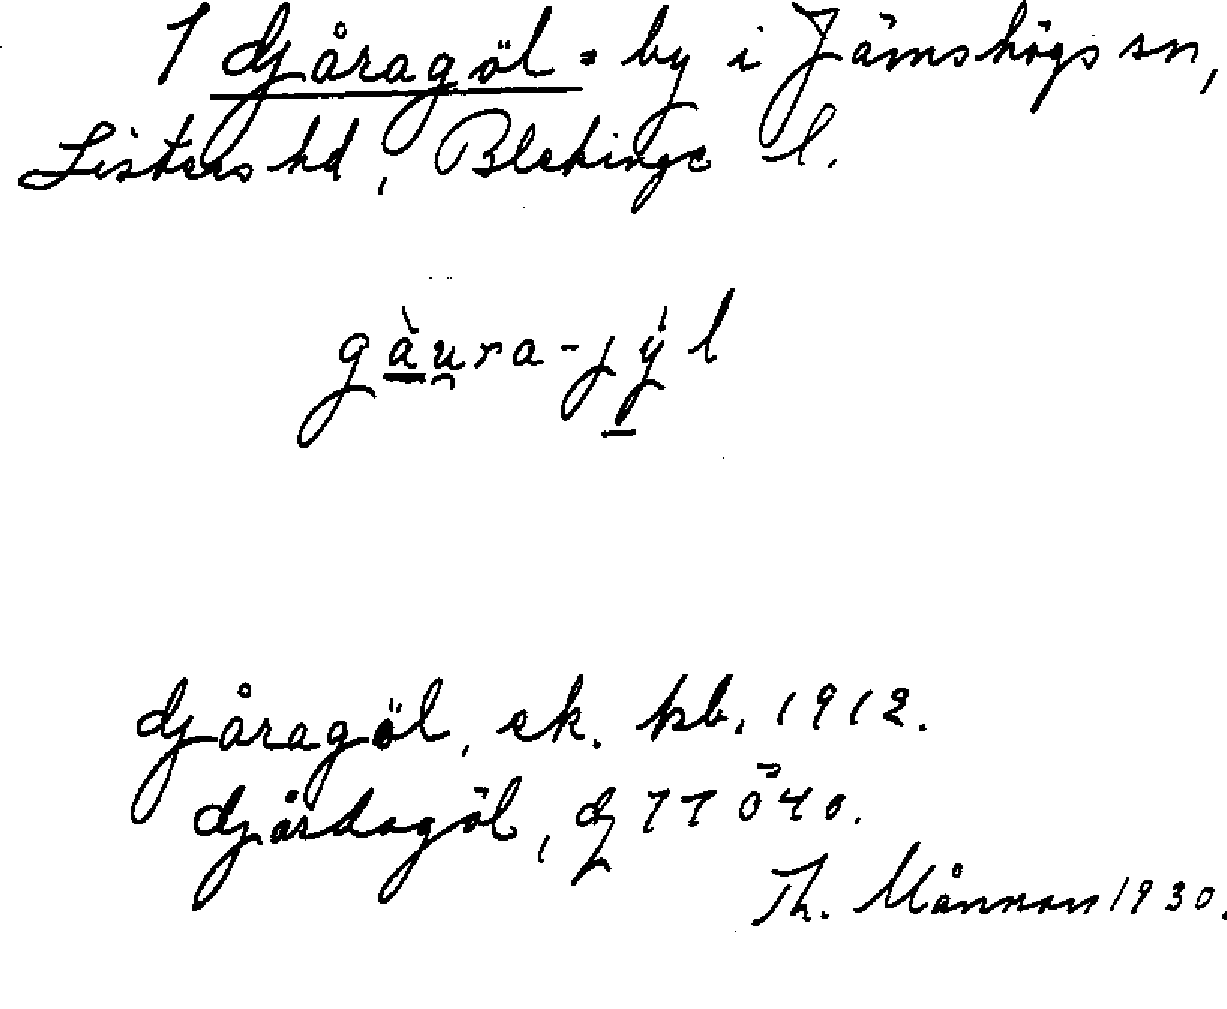 1 Gåragöl = by i Jämshögs sn,
Listers hd, Blekinge l.
gàura-jýl
Gåragöl, ek. kb. 1912.
Gårdagöl, G 77 Ö 40.
Th. Månson 1930.